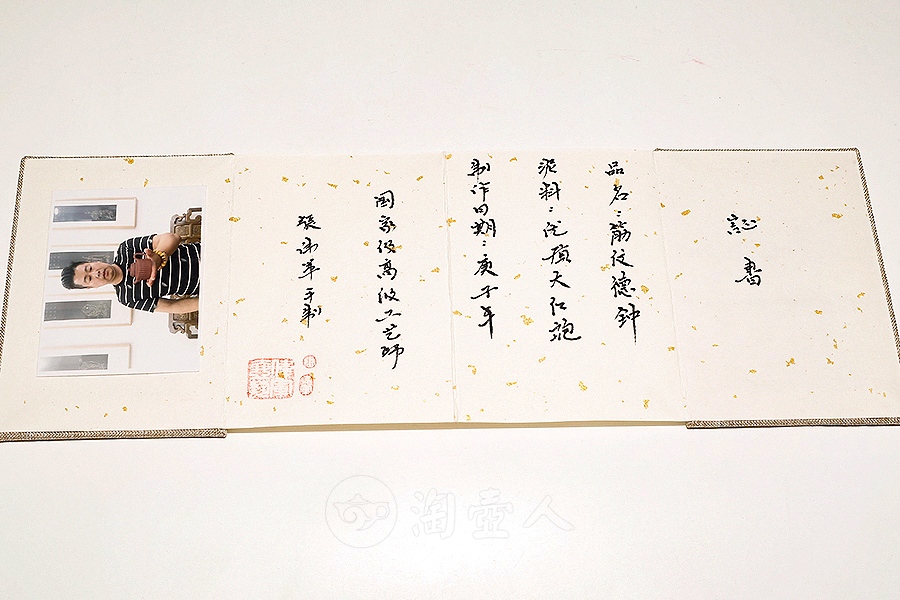 證書
品名：筋纹德钟
泥料：优质大红袍
制作日期：庚子年
国家级高级工艺师
手制
淘壶人